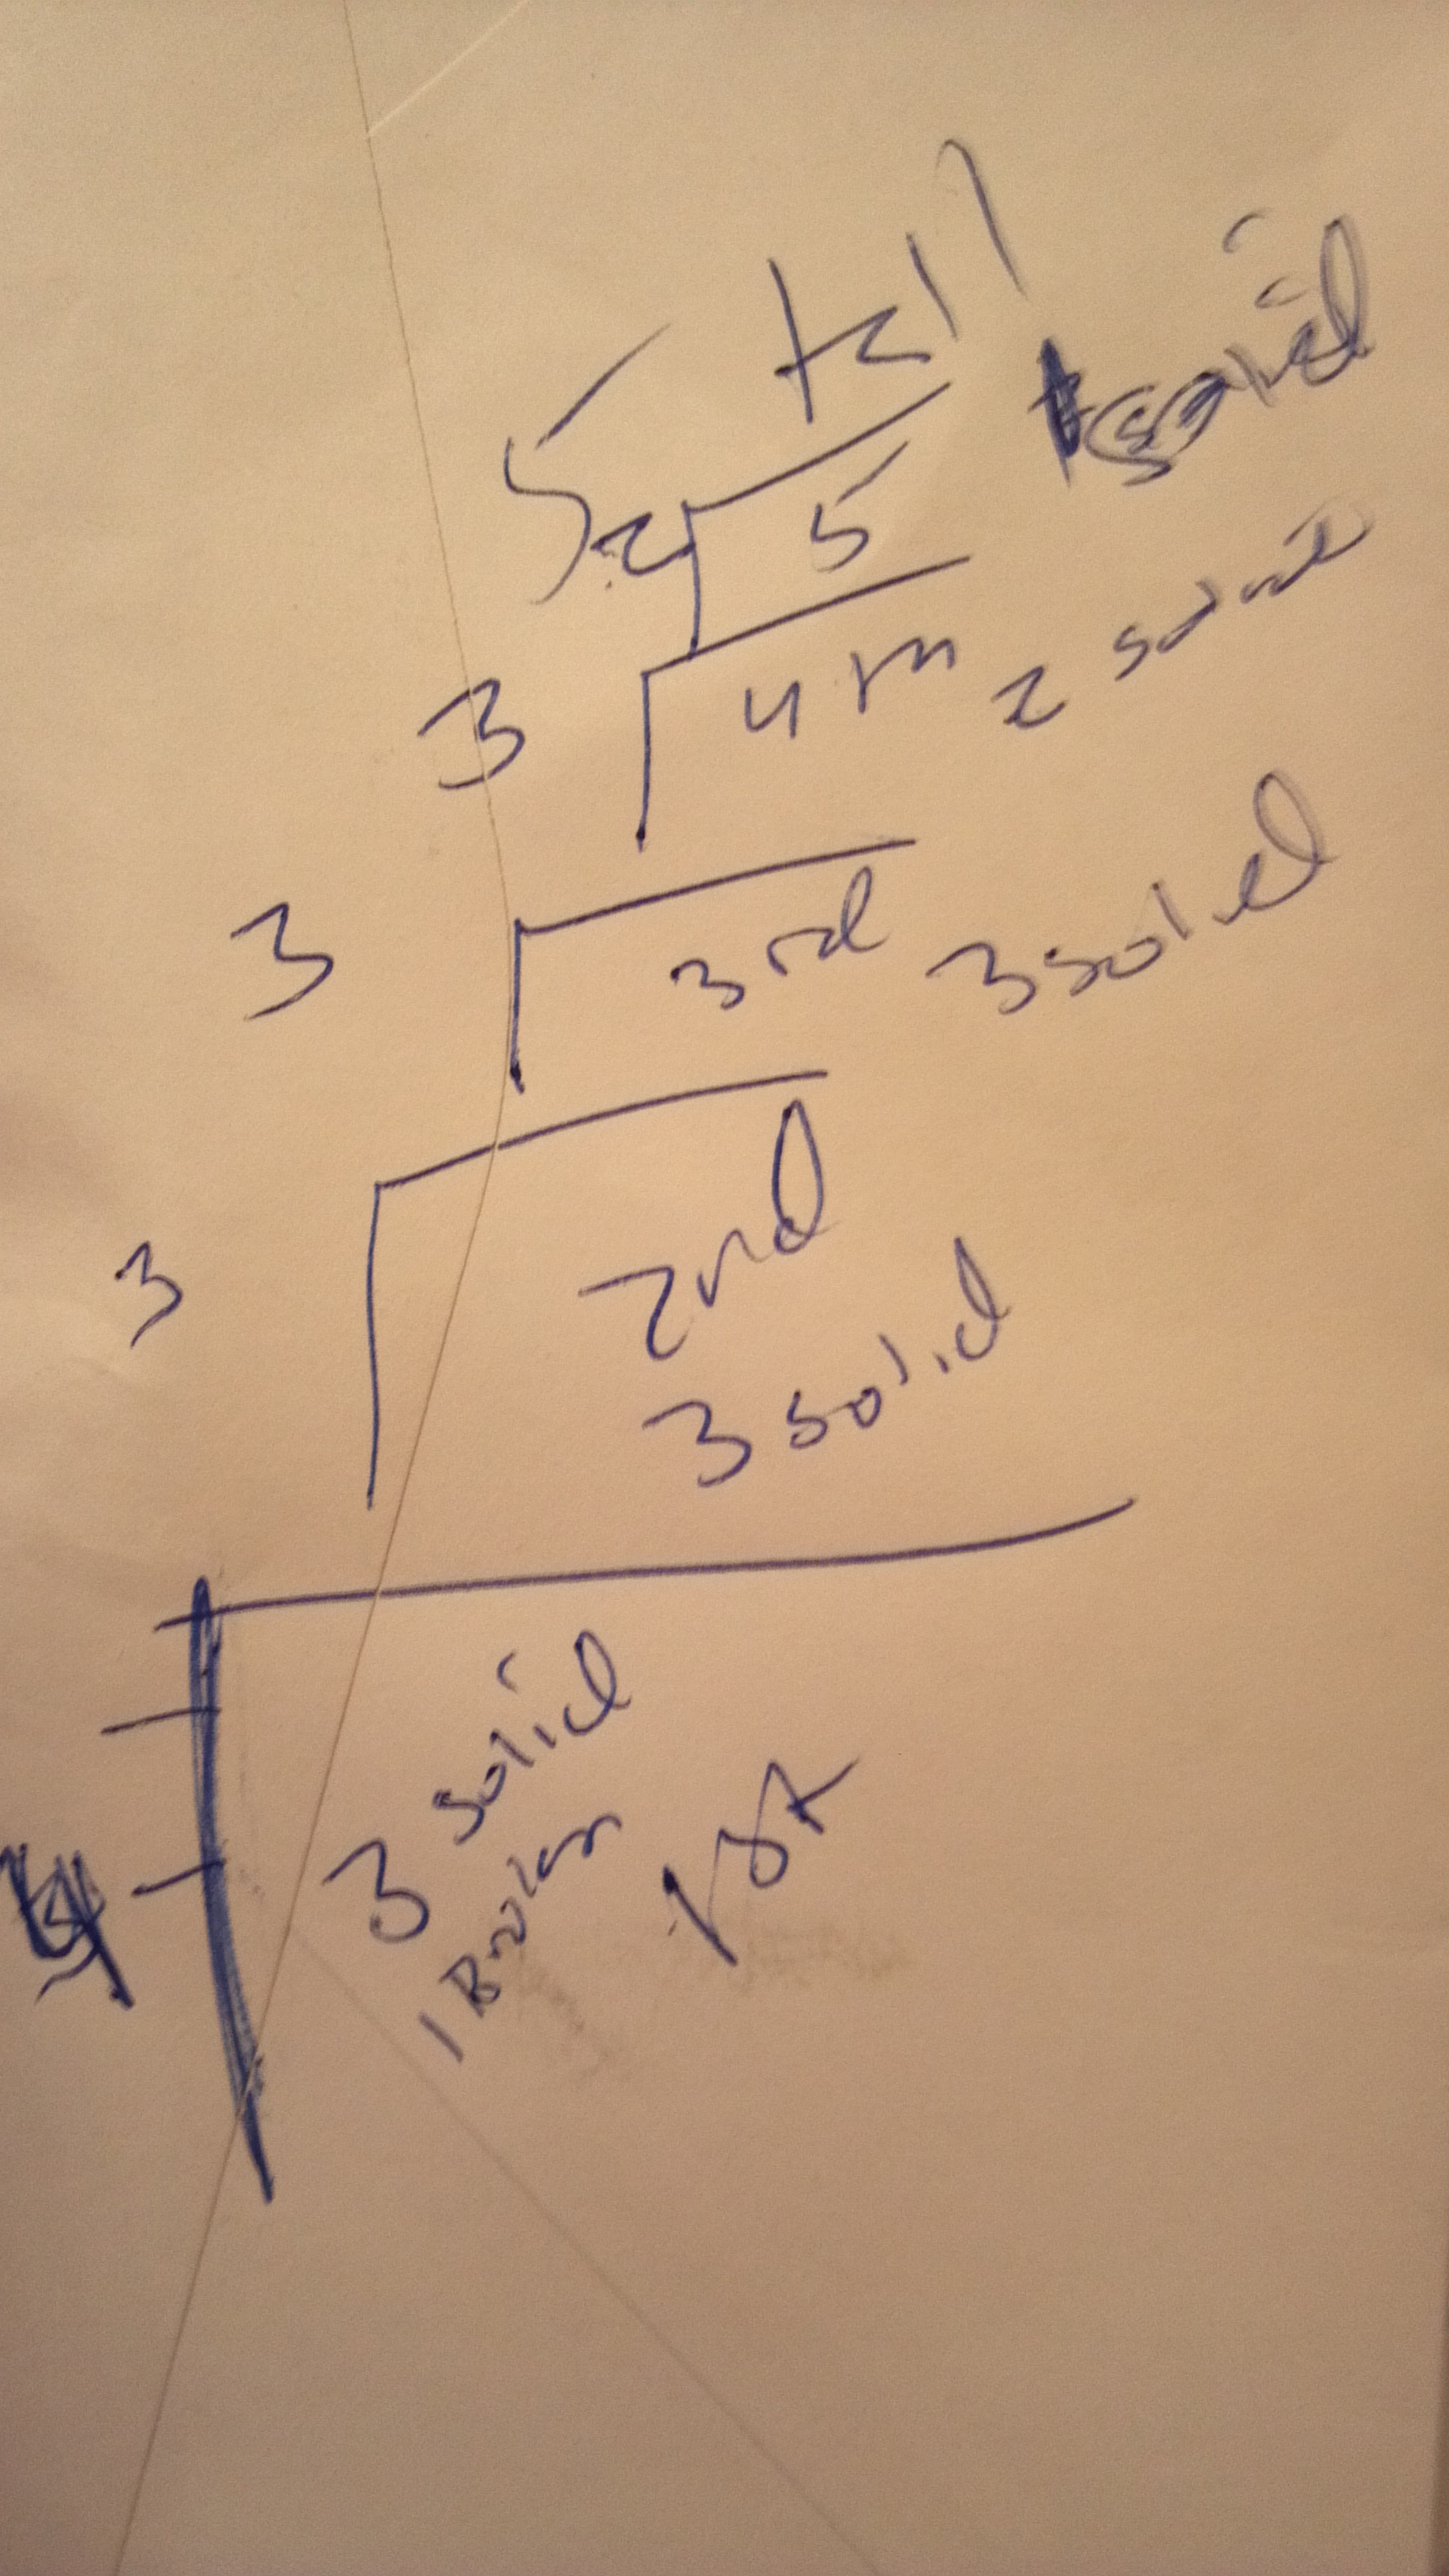 tall
5 2 5 solid
3 4th 2 solid
3 3rd 3 solid
3 2nd
3 solid
3 solid
1 Broken 1st